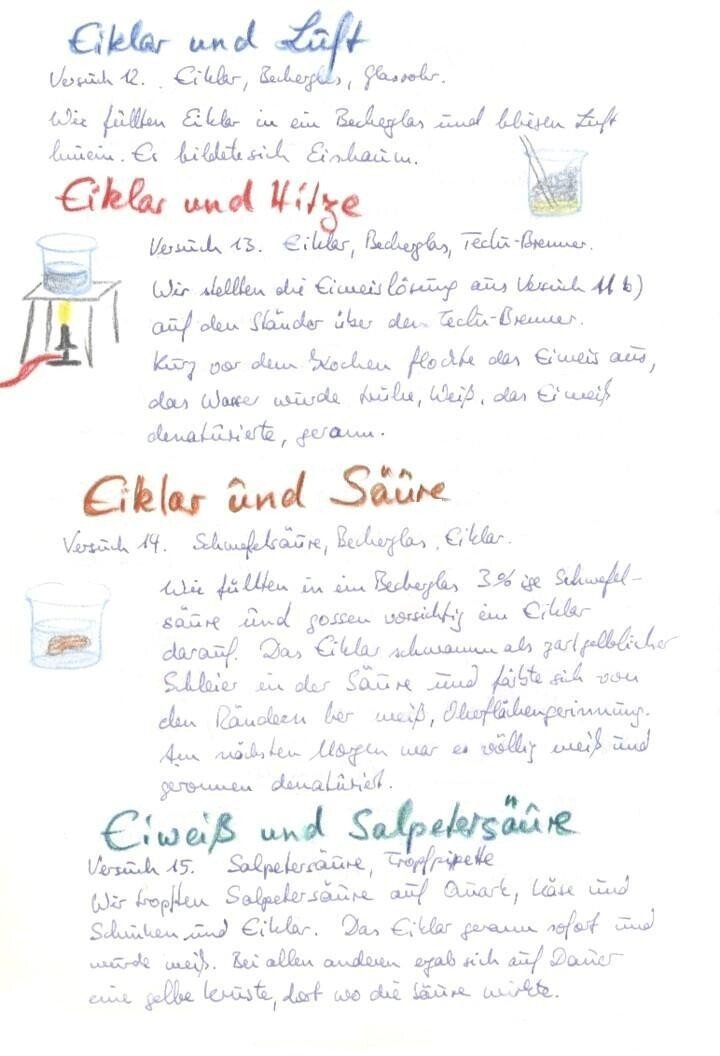 Eiklar und Luft
Versuch 12. Eiklar, Becherglas, Glasrohr.
Wir füllten Eiklar in ein Becherglas und bliesen Luft
hinein. Es bildete sich Eischaum.
Eiklar und Hitze
Versuch 13. Eiklar, Becherglas, Teclu-Brenner.
Wir stellten die Eiweislösung aus Versuch 11 b)
auf den Ständer über den Teclu-Brenner.
Kurz vor dem Kochen flockte das Eiweis aus,
das Wasser wurde trübe, Weiß, das Eiweiß
denaturierte, gerann.
Eiklar und Säure
Versuch 14. Schwefelsäure, Becherglas, Eiklar.
Wir füllten in ein Becherglas 3%ige Schwefel-
säure und gossen vorsichtig ein Eiklar
darauf. Das Eiklar schwamm als zartgelblicher
Schleier in der Säure und färbte sich von
den Rändern her weiß, Oberflächengerinnung.
Am nächsten Morgen war es völlig weiß und
geronnen denaturiert.
Eiweiß und Salpetersäure
Versuch 15. Salpetersäure, Tropfpipette
Wir tropften Salpetersäure auf Quark, Käse und
Schinken und Eiklar. Das Eiklar gerann sofort und
wurde weiß. Bei allen anderen ergab sich auf Dauer
eine gelbe Kruste, dort wo die Säure wirkte.